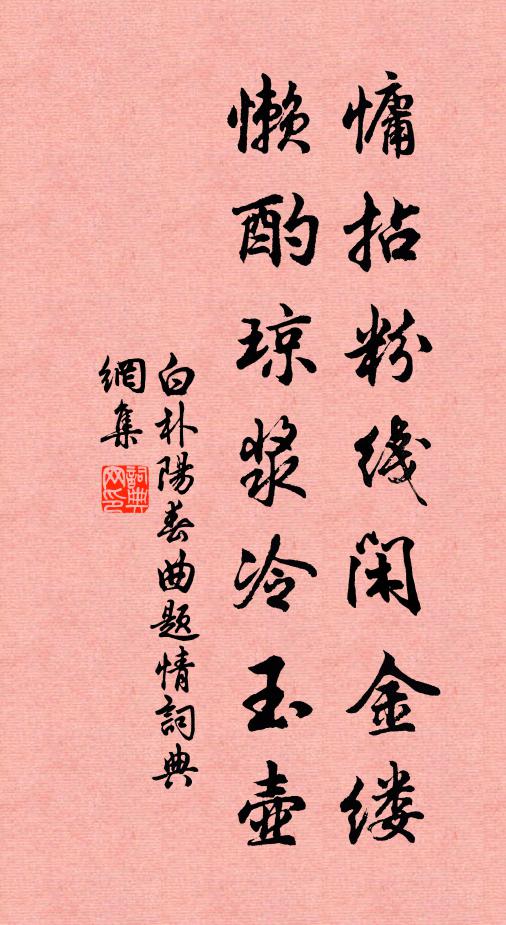 慵拈粉线闲金缕
懒酌琼浆冷玉壶
白朴陽春曲题情詞典
網集
詞典
网印